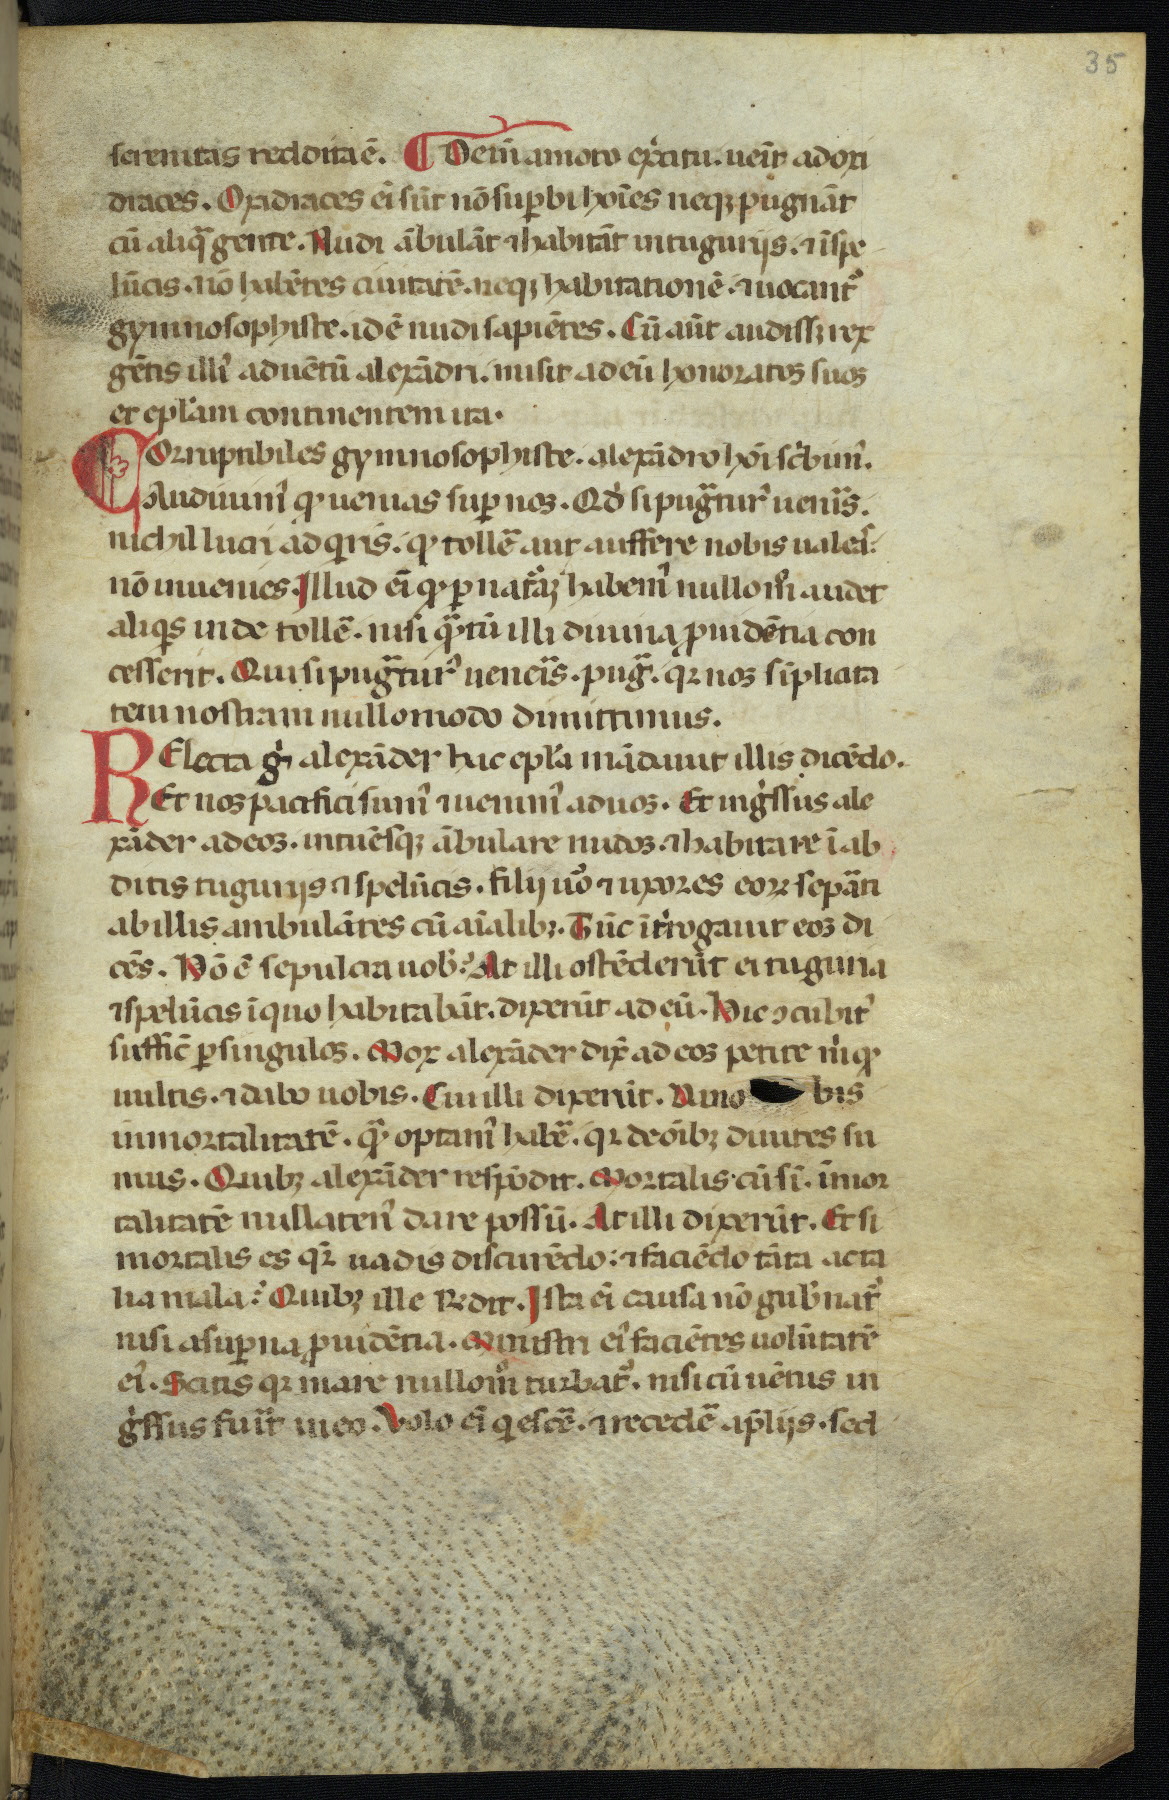 35
serenitas reddita ē. ¶ Deīn amoto exc̄itu. ueīt ad oxi
draces. Oxidraces ei sūt nō sup̄bi hoīes neqꝫ pugnāt
cū aliq̄ gente. Nudi ābulāt ⁊ habitāt in tugurijs. ⁊ ī spe
lūcis. nō habētes ciuitatē. neqꝫ habitationē. ⁊ uocant᷑
gymnosophiste. id ē nudi sapiētes. Cū aūt audissꝫ rex
gētis illi᷒ aduētū alexādri. misit ad eū honoratos suos
et epl̄am continentem ita.
Corruptibiles gymnosophiste. alexādro hoī sc̄bim᷒.
Audiuim᷒ qͥ uenias sup̄ nos. Qd̄ si pug̃tur᷒ uenīs.
nichil lucri adqͥris. qͥ tollē aut aufferre nobis ualeas.
nō inuenies. Illud ei qͥ p̲ nat᷑aꝫ habem᷒ nullom̊ audet
aliqͥs inde tollē. nisi qͣtū illi diuina ꝓuidētia con
cesserit. Qui si pug̃tur᷒ ueneīs. pug̃. qꝛ nos sīplicita
tem nostram nullo modo dimittimus.
RElecta gͥ alexāder hac epl̄a mādauit illis dicēdo.
Et nos pacifici sum᷒ ⁊ uenim᷒ ad uos. Et ing̊ssus ale
xāder ad eos. intuēsqꝫ ābulare nudos. ⁊ habitare ī ab
ditis tugurijs ⁊ spelūcis. filij uͦo ⁊ uxores eoꝝ sepāti
ab illis ambulātes cū aīalibꝫ. Tūc īt̄rogauit eos di
cēs. Nō ē sepulcra uob̄? At illi ostēderūt ei tuguria
⁊ spelūcas ī quo habitabāt. dixerūt ad eū. Hic ꝯcubit᷒
suffic̄ p̲ singulos. Mox alexāder dix̄ ad eos petite m̄ qͥ
uultis. ⁊ dabo uobis. Cui illi dixerūt. Da no bis
inmortalitatē. qͣ optam᷒ habē. qꝛ de oībꝫ diuites su
mus. Quibꝫ alexāder respōdit. Mortalis cū sī. īmor
talitatē nullaten᷒ dare possū. At illi dixerūt. Et si
mortalis es qͣr̄ uadis discurrēdo: ⁊ faciēdo tāta ac ta
lia mala? Quibꝫ ille R̄dit. Ista ei causa nō gub̄nat᷑
nisi a sup̄na ꝓuidētia. Ministri ei᷒ faciētes uolūtatē
ei᷒. Scitis qꝛ mare nullom̊ turbat᷑. nisi cū uētus in
g̊ssus fuīt in eo. Volo ei qͥescē. ⁊ recedē a p̄lijs. sed